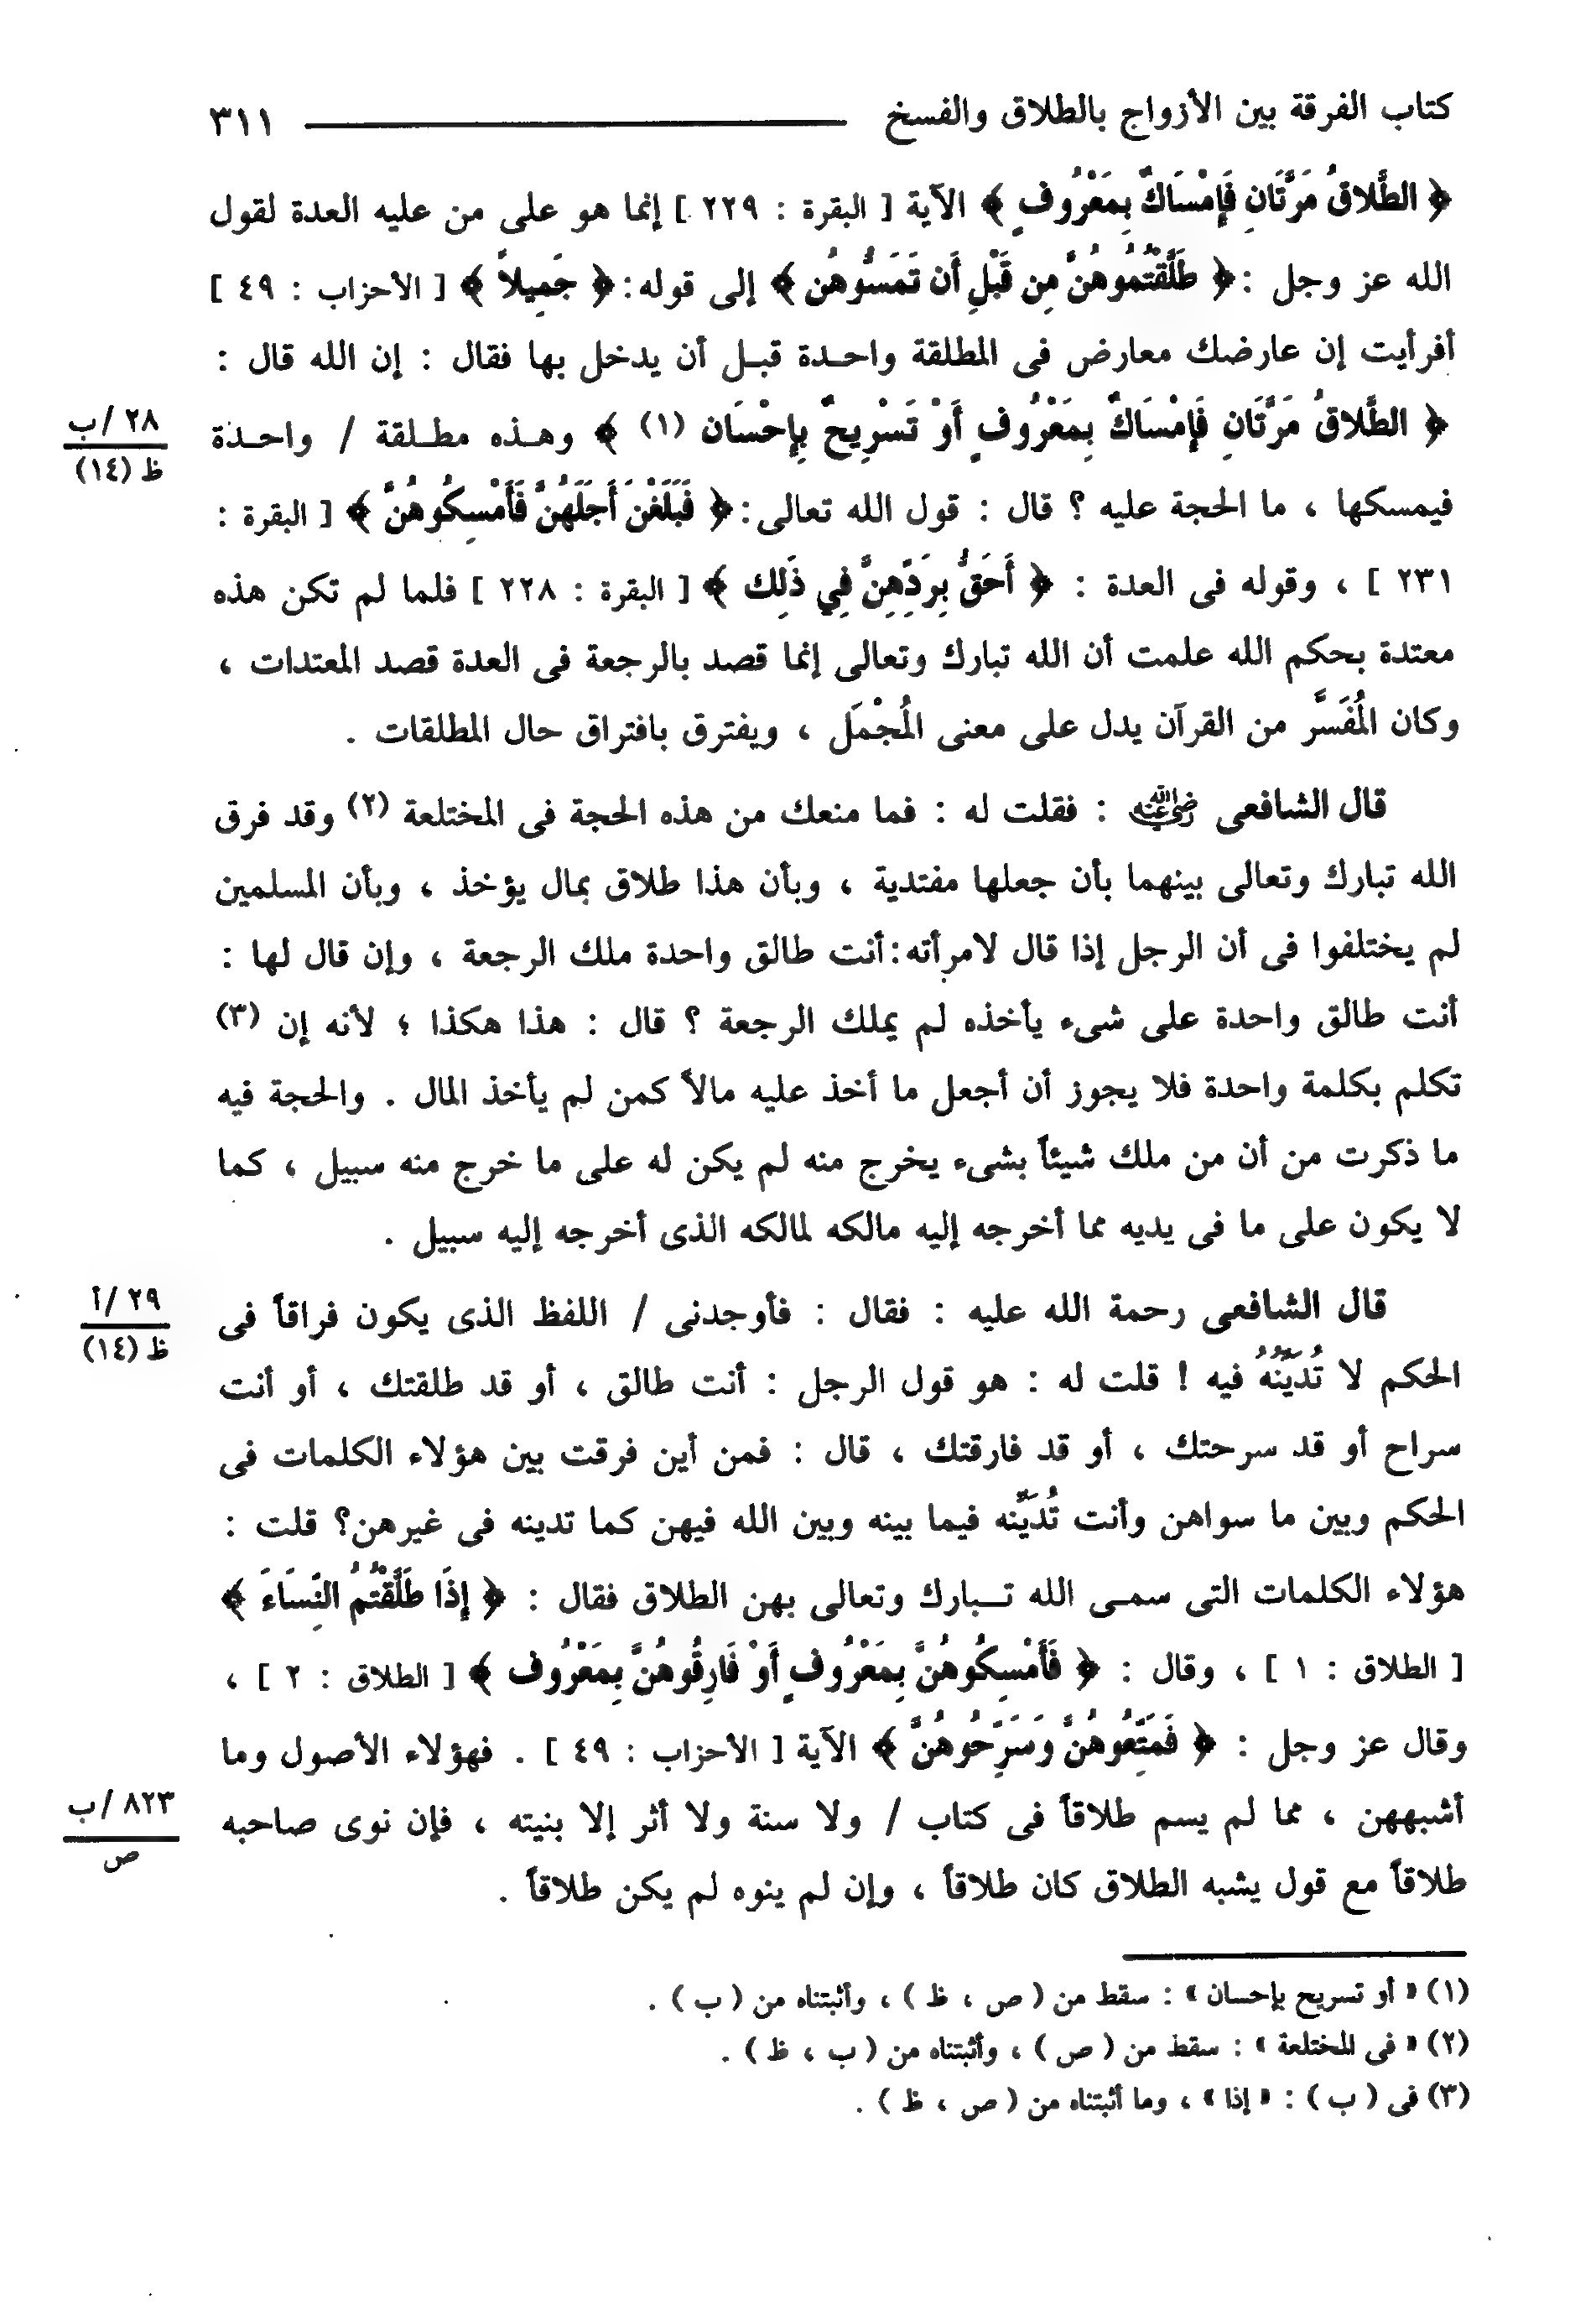 كتاب الفرقة بين الأزواج بالطلاق والفسخ ٣١١
﴿ الطَّلاقُ مَرَّتَانِ فَإِمْسَاكٌ بِمَعْرُوفٍ ﴾ الآية [ البقرة : ٢٢٩ ] إنما هو على من عليه العدة لقول
الله عز وجل : ﴿ طَلَّقْتُمُوهُنَّ مِن قَبْلِ أَن تَمَسُّوهُن ﴾ إلى قوله : ﴿ جَمِيلاً ﴾ [ الأحزاب : ٤٩ ]
أفرأيت إن عارضك معارض فى المطلقة واحـدة قبـل أن يدخل بها فقال : إن الله قال :
﴿ الطَّلاقُ مَرَّتَانِ فَإِمْسَاكٌ بِمَعْرُوفٍ أَوْ تَسْرِيحٌ بِإِحْسَان (١) ﴾ وهـذه مطـلقة / واحـدة
٢٨ /ب
ظ (١٤)
فيمسكها ، ما الحجة عليه ؟ قال : قول الله تعالى : ﴿ فَبَلَغْنَ أَجَلَهُنَّ فَأَمْسِكُوهُنَّ ﴾ [ البقرة :
٢٣١ ] ، وقوله فى العدة : ﴿ أَحَقُّ بِرَدِّهِنَّ فِي ذَلِك ﴾ [ البقرة : ٢٢٨ ] فلما لم تكن هذه
معتدة بحكم الله علمت أن الله تبارك وتعالى إنما قصد بالرجعة فى العدة قصد المعتدات ،
وكان المُفَسَّر من القرآن يدل على معنى المُجْمَل ، ويفترق بافتراق حال المطلقات .
قال الشافعى رضي الله عنه : فقلت له : فما منعك من هذه الحجة فى المختلعة (٢) وقد فرق
الله تبارك وتعالى بينهما بأن جعلها مفتدية ، وبأن هذا طلاق بمال يؤخذ ، وبأن المسلمين
لم يختلفوا فى أن الرجل إذا قال لامرأته : أنت طالق واحدة ملك الرجعة ، وإن قال لها :
أنت طالق واحدة على شىء يأخذه لم يملك الرجعة ؟ قال : هذا هكذا ؛ لأنه إن (٣)
تكلم بكلمة واحدة فلا يجوز أن أجعل ما أخذ عليه مالاً كمن لم يأخذ المال . والحجة فيه
ما ذكرت من أن من ملك شيئاً بشىء يخرج منه لم يكن له على ما خرج منه سبيل ، كما
لا يكون على ما فى يديه مما أخرجه إليه مالكه لمالكه الذى أخرجه إليه سبيل .
قال الشافعى رحمة الله عليه : فقال : فأوجدنى / اللفظ الذى يكون فراقاً فى
٢٩ /أ
ظ (١٤)
الحكم لا تُدَيِّنُهُ فيه ! قلت له : هو قول الرجل : أنت طالق ، أو قد طلقتك ، أو أنت
سراح أو قد سرحتك ، أو قد فارقتك ، قال : فمن أين فرقت بين هؤلاء الكلمات فى
الحكم وبين ما سواهن وأنت تُدَيِّنه فيما بينه وبين الله فيهن كما تدينه فى غيرهن؟ قلت :
هؤلاء الكلمات التى سمـى الله تـبارك وتعالى بهن الطلاق فقال : ﴿ إِذَا طَلَّقْتُمُ النِّسَاءَ ﴾
[ الطلاق : ١ ] ، وقال : ﴿ فَأَمْسِكُوهُنَّ بِمَعْرُوفٍ أَوْ فَارِقُوهُنَّ بِمَعْرُوف ﴾ [ الطلاق : ٢ ] ،
وقال عز وجل : ﴿ فَمَتِّعُوهُنَّ وَسَرِّحُوهُنَّ ﴾ الآية [ الأحزاب : ٤٩ ] . فهؤلاء الأصول وما
أشبههن ، مما لم يسم طلاقاً فى كتاب / ولا سنة ولا أثر إلا بنيته ، فإن نوى صاحبه
٨٢٣ /ب
ص
طلاقاً مع قول يشبه الطلاق كان طلاقاً ، وإن لم ينوه لم يكن طلاقاً .
(١) « أو تسريح بإحسان » : سقط من ( ص ، ظ ) ، وأثبتناه من ( ب ) .
(٢) « فى المختلعة » : سقط من ( ص ) ، وأثبتناه من ( ب ، ظ ) .
(٣) فى ( ب ) : « إذا » ، وما أثبتناه من ( ص ، ظ ) .